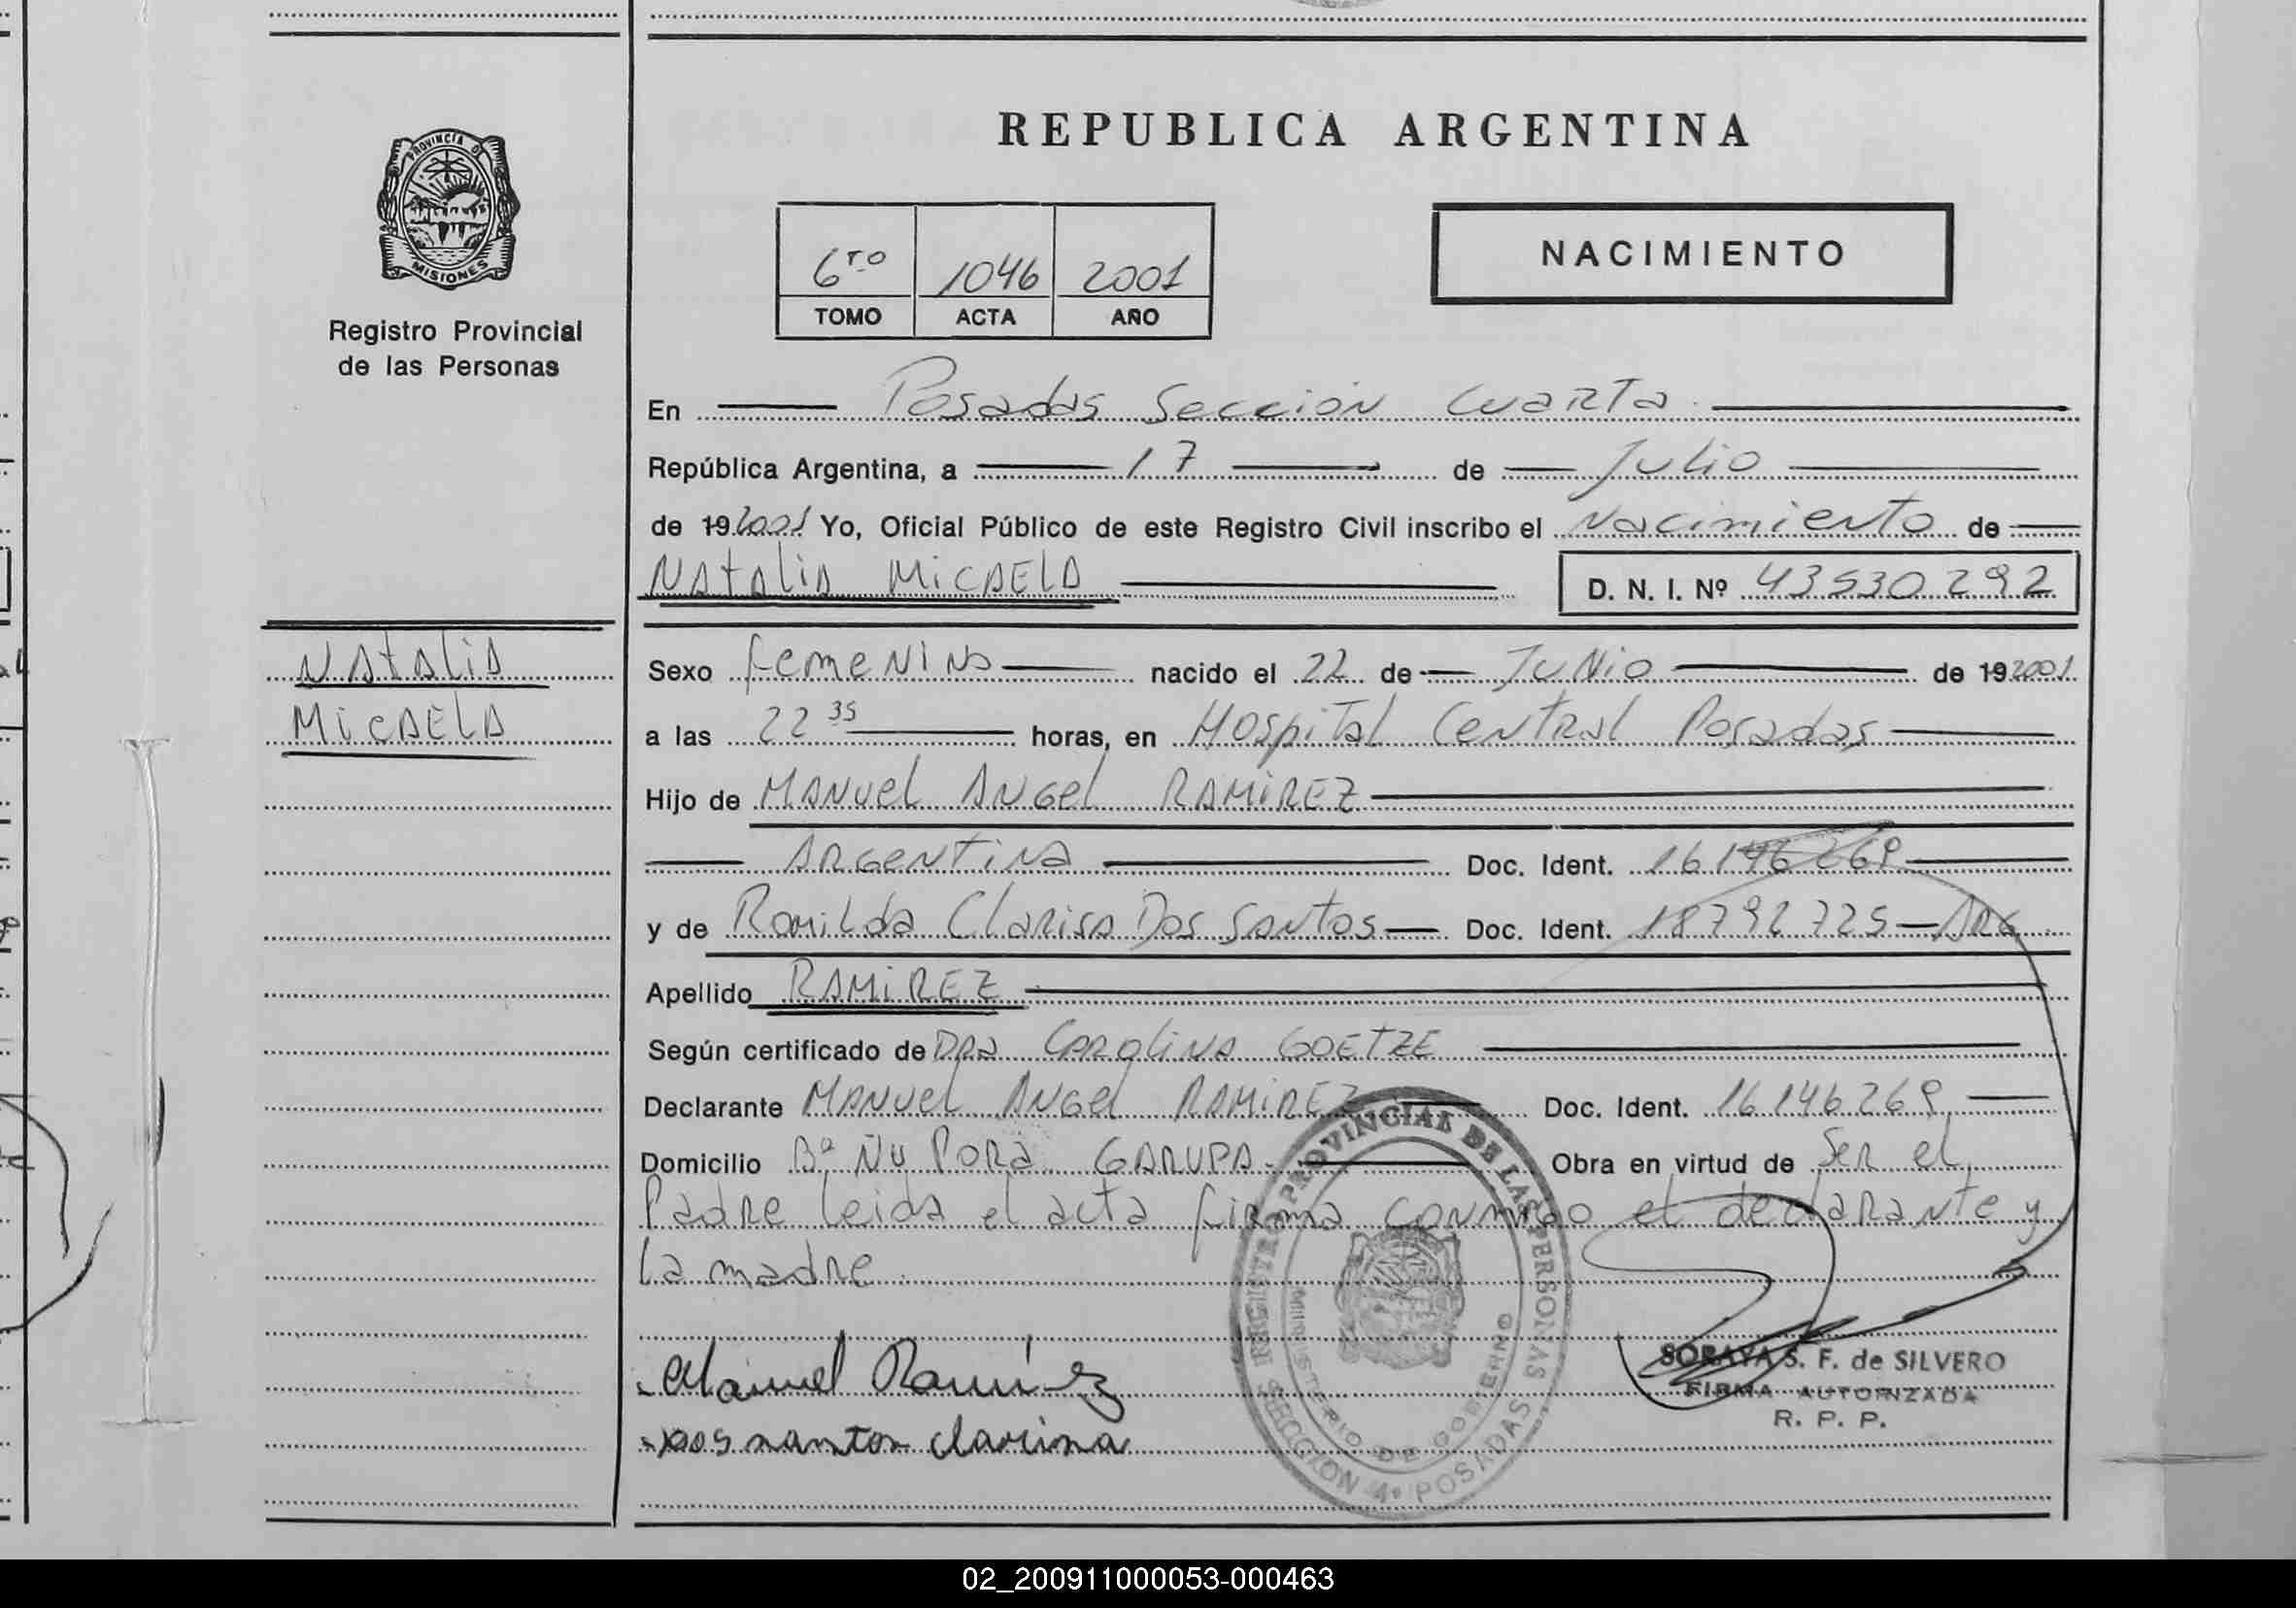 REPUBLICA ARGENTINA
PROVINCIA DE
MISIONES
Registro Provincial
de las Personas
6to 1046 2001
TOMO ACTA AÑO
NACIMIENTO
En Posadas Sección Cuarta
República Argentina, a 17 de Julio
de 19 2001 Yo, Oficial Público de este Registro Civil inscribo el Nacimiento de
Natalia Micaela D. N. I. Nº 43530292
Natalia
Micaela
Sexo femenino nacido el 22 de Junio de 19 2001
a las 22 35 horas, en Hospital Central Posadas
Hijo de Manuel Angel RAMIREZ
Argentina Doc. Ident. 16146269
y de Romilda Clarisa Dos Santos Doc. Ident. 18792725 - ARG
Apellido RAMIREZ
Según certificado de Dra Carolina GOETZE
Declarante Manuel Angel RAMIREZ Doc. Ident. 16146269
Domicilio Bº Ñu Pora GARUPA Obra en virtud de Ser el
Padre leida el acta firma conmigo el declarante y
la madre
Manuel Ramírez
Dos santos clarisa
REGISTRO PROVINCIAL DE LAS PERSONAS
MINISTERIO DE GOBIERNO
SECCION 4ª POSADAS
SORAYA S. F. de SILVERO
FIRMA AUTORIZADA
R. P. P.
02_200911000053-000463